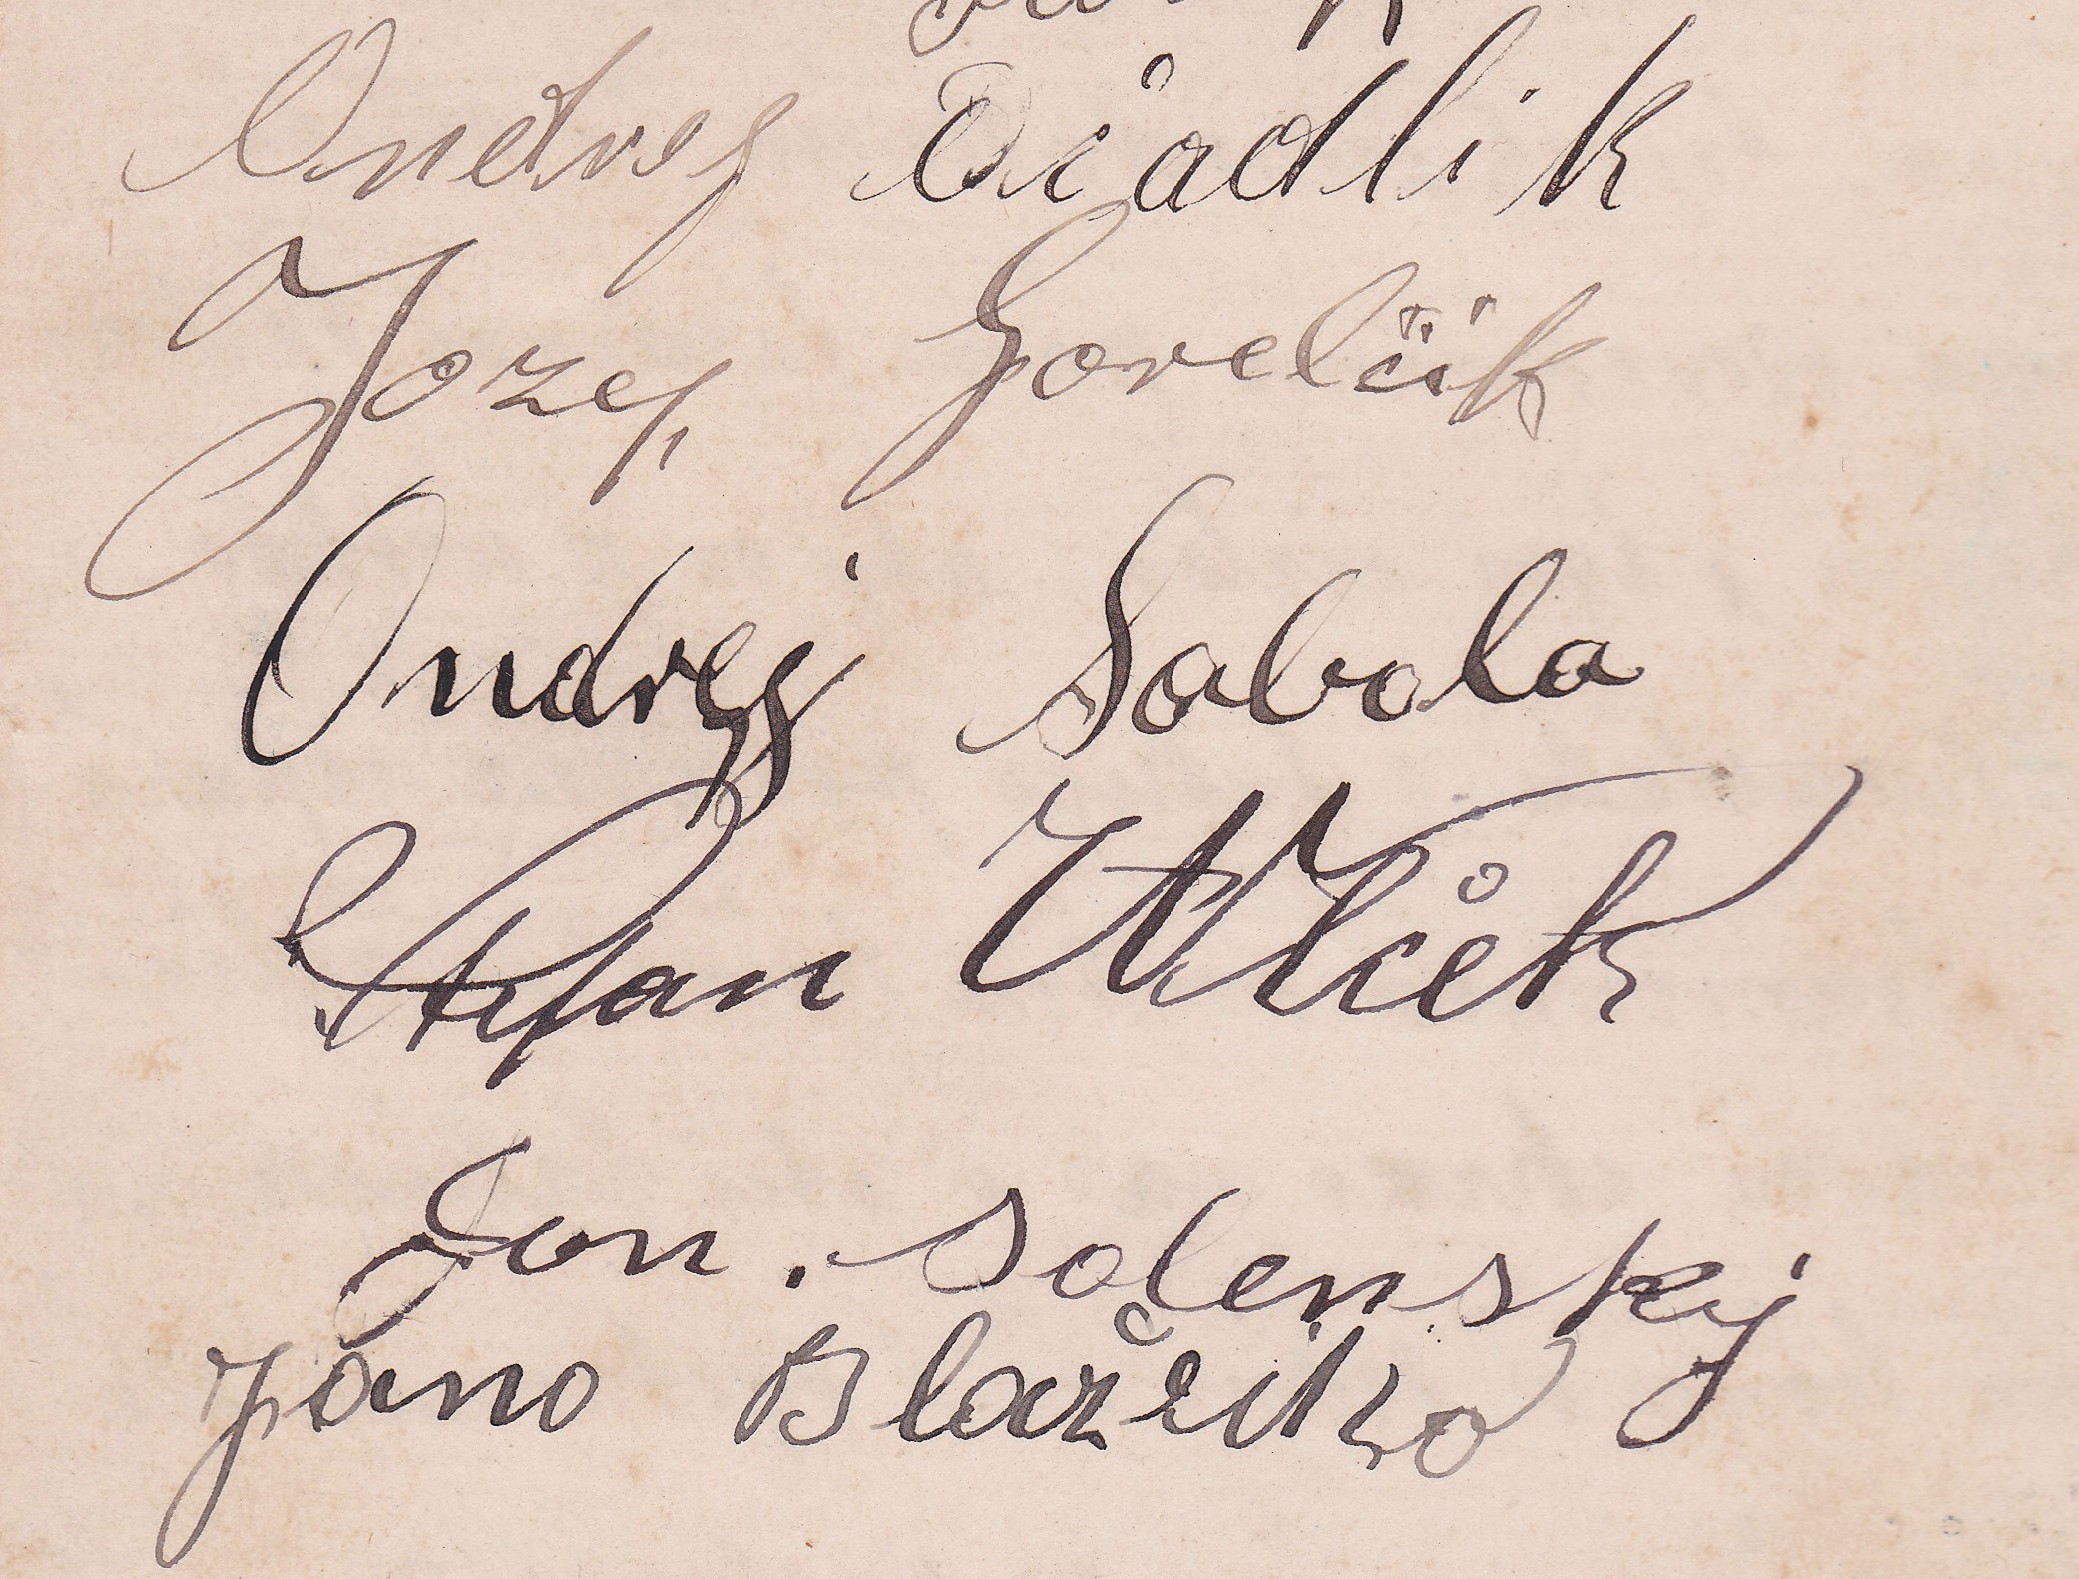 Ondrej Diadlik
Jozef Gorelčik
Ondrej Sabola
Štefan Vlček
Jon. Solensky
Jano Blažeiko